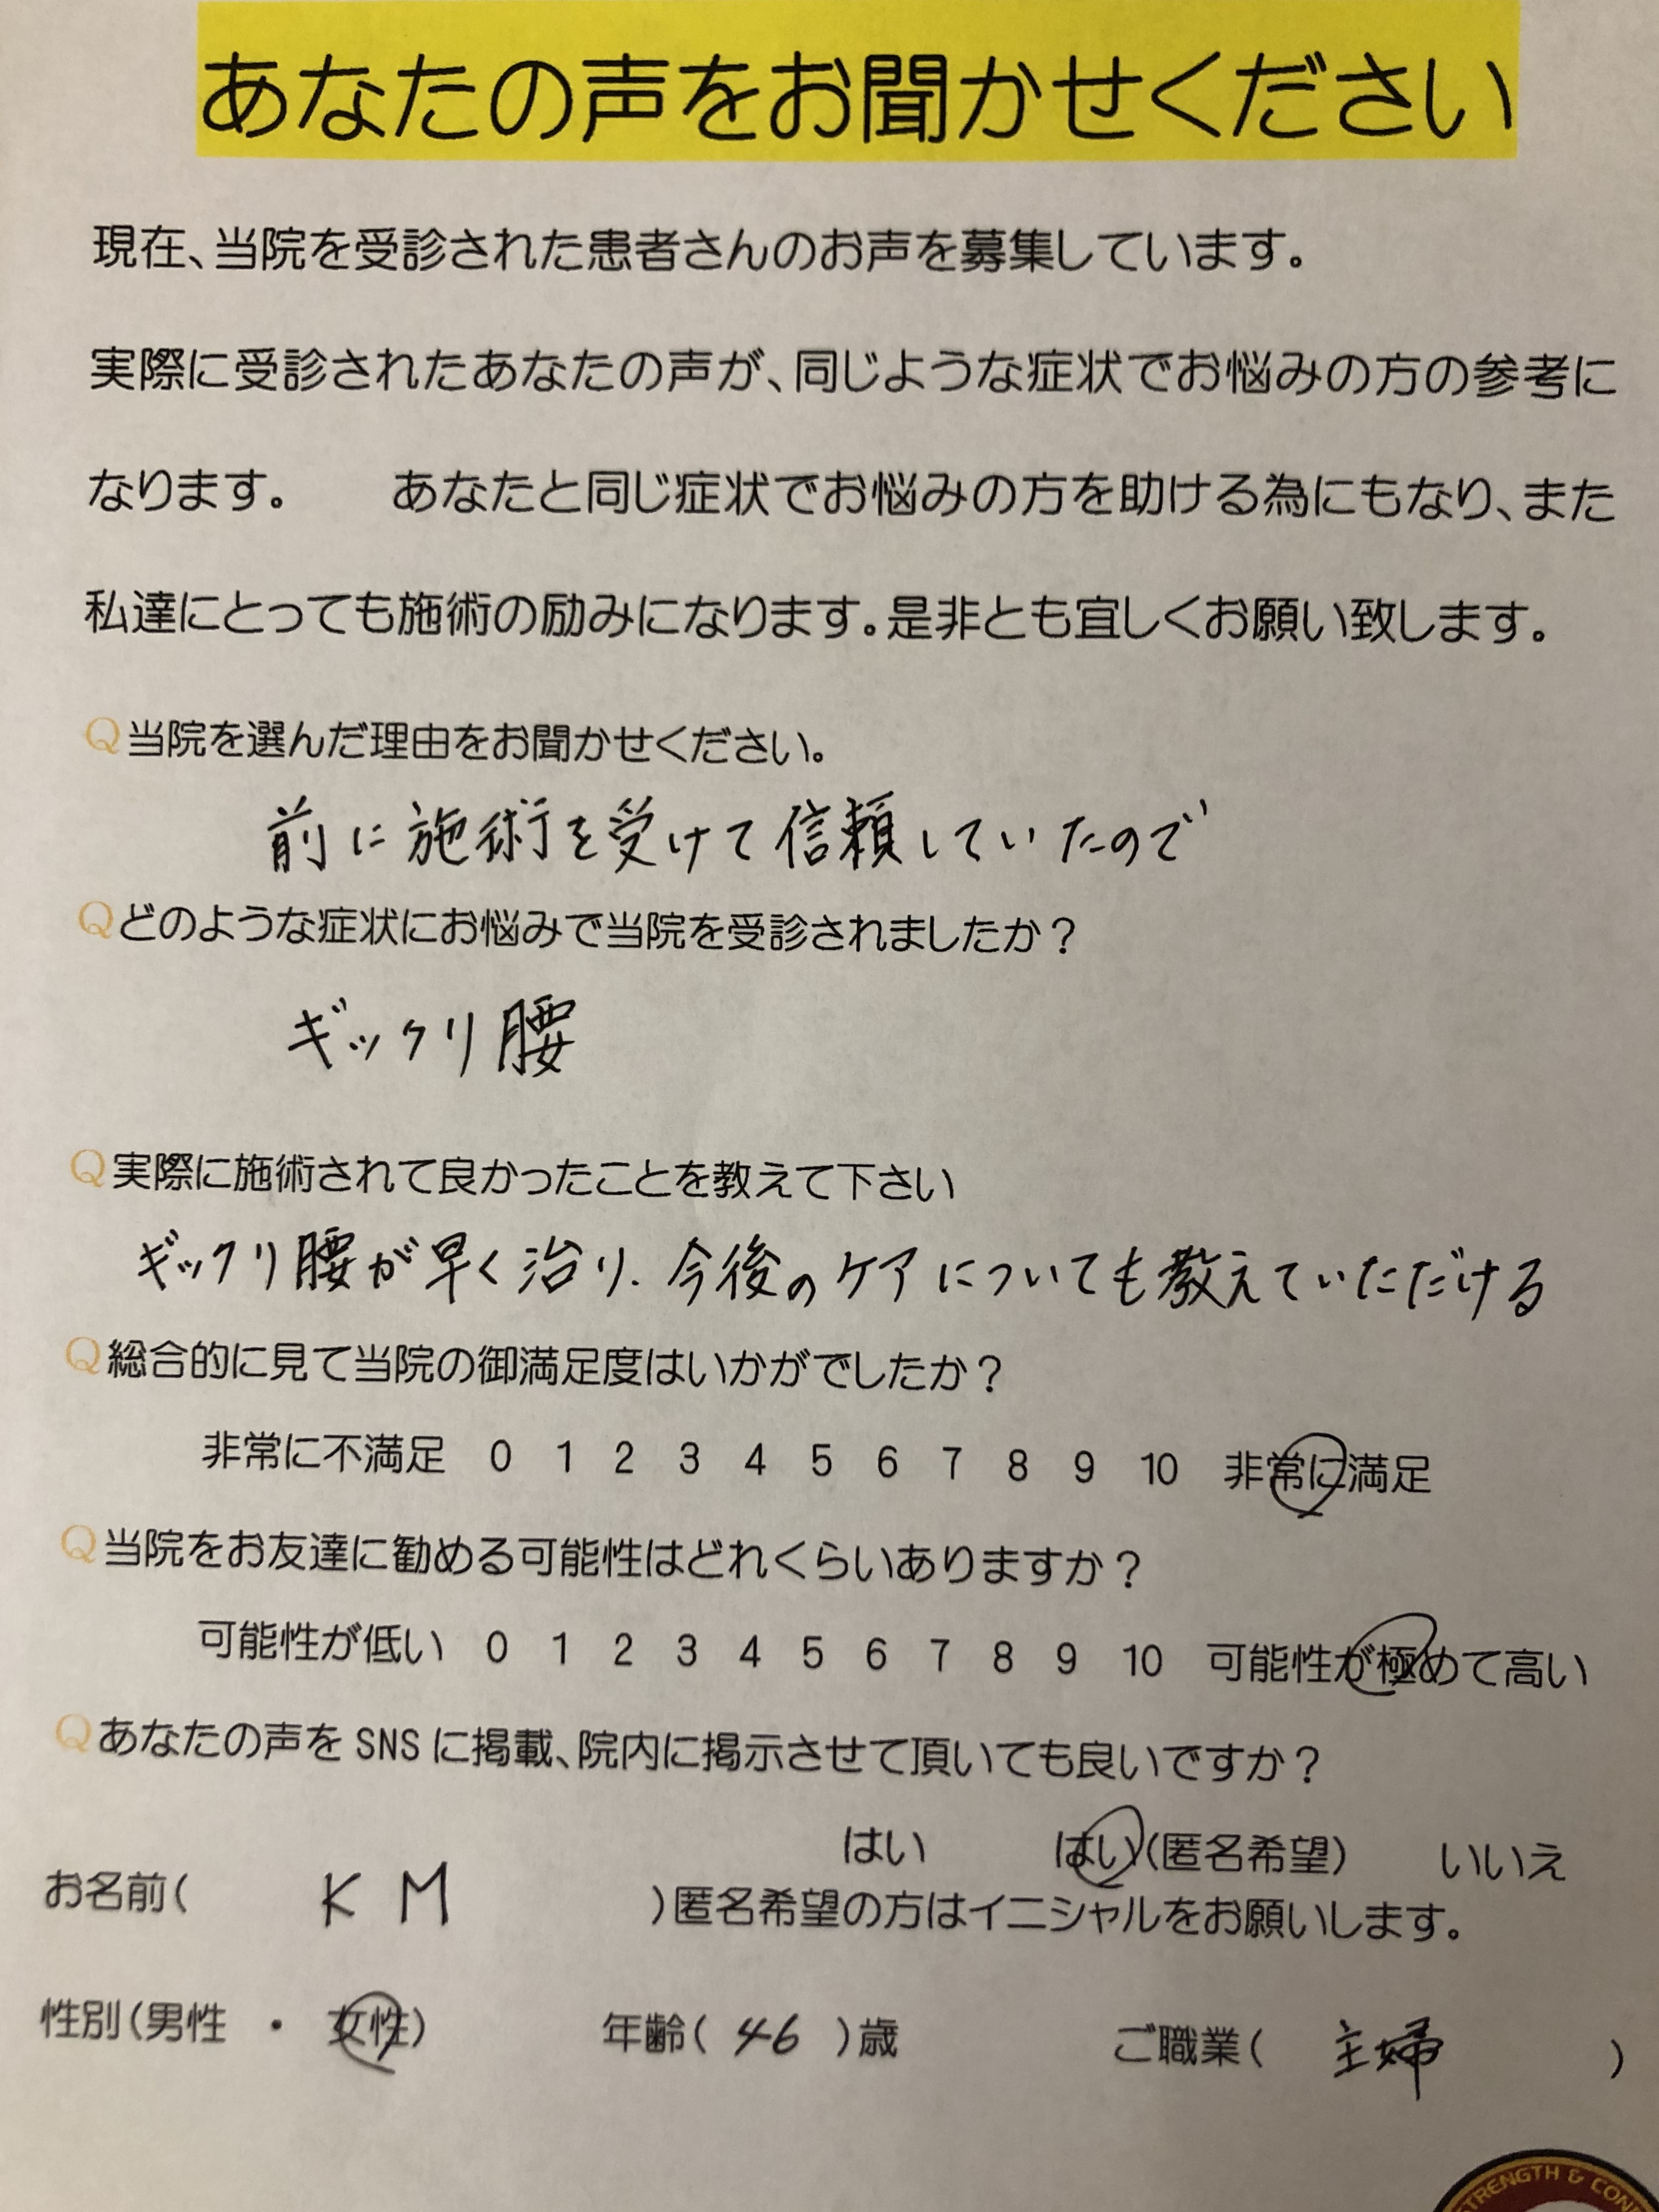 あなたの声をお聞かせください
現在、当院を受診された患者さんのお声を募集しています。
実際に受診されたあなたの声が、同じような症状でお悩みの方の参考に
なります。　あなたと同じ症状でお悩みの方を助ける為にもなり、また
私達にとっても施術の励みになります。是非とも宜しくお願い致します。
Q当院を選んだ理由をお聞かせください。
前に施術を受けて信頼していたので
Qどのような症状にお悩みで当院を受診されましたか？
ギックリ腰
Q実際に施術されて良かったことを教えて下さい
ギックリ腰が早く治り、今後のケアについても教えていただける
Q総合的に見て当院の御満足度はいかがでしたか？
非常に不満足 0 1 2 3 4 5 6 7 8 9 10 非常に満足
Q当院をお友達に勧める可能性はどれくらいありますか？
可能性が低い 0 1 2 3 4 5 6 7 8 9 10 可能性が極めて高い
Qあなたの声を SNS に掲載、院内に掲示させて頂いても良いですか？
はい はい(匿名希望) いいえ
お名前( K M )匿名希望の方はイニシャルをお願いします。
性別(男性 ・ 女性) 年齢( 46 )歳 ご職業( 主婦 )
STRENGTH & CON